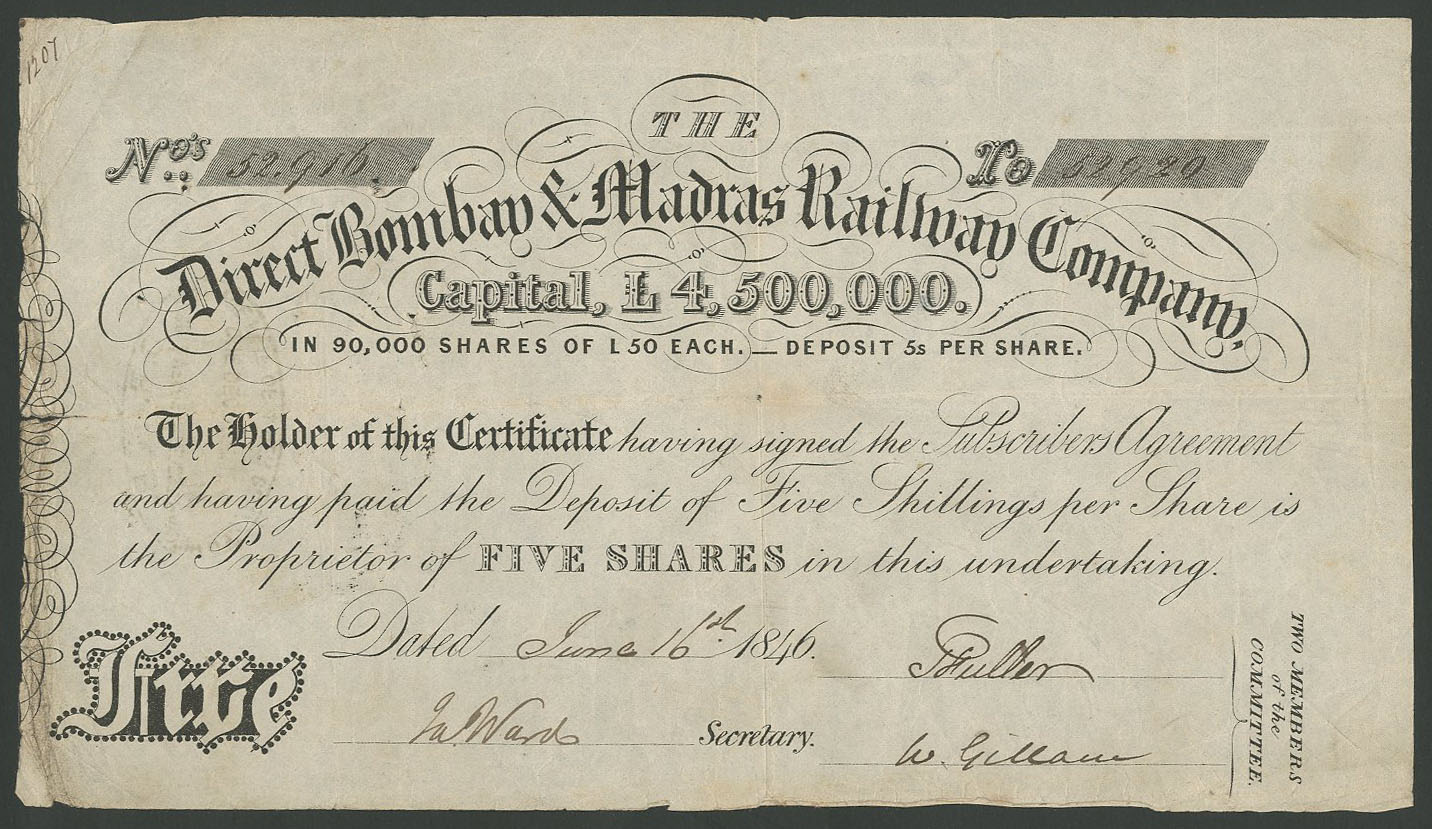 1207
THE
No's 52.916. To 52920
Direct Bombay & Madras Railway Company,
Capital, £ 4,500,000.
IN 90,000 SHARES OF £50 EACH. — DEPOSIT 5s PER SHARE.
The Holder of this Certificate having signed the Subscribers Agreement
and having paid the Deposit of Five Shillings per Share is
the Proprietor of FIVE SHARES in this undertaking.
Dated June 16th 1846.
Five
Fuller
Ja. Ward Secretary.
W. Gillam
TWO MEMBERS
of the
COMMITTEE.